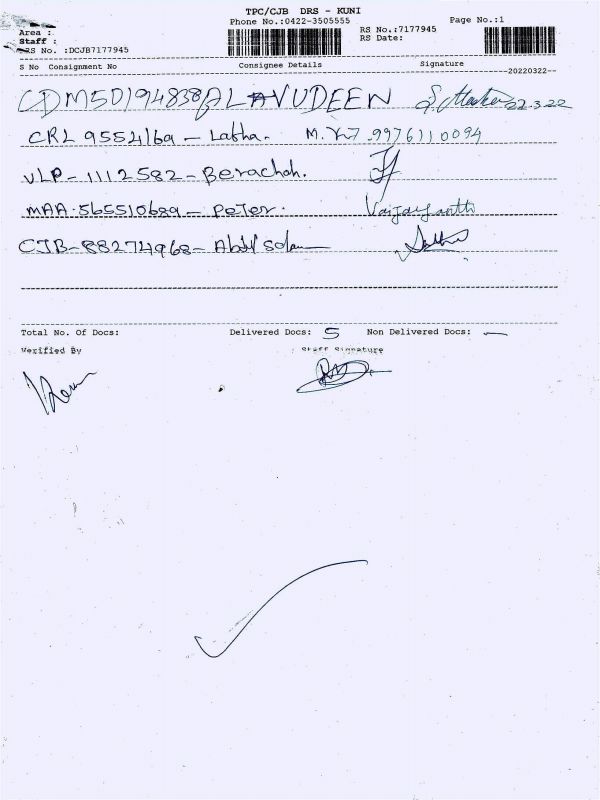 TPC/CJB DRS - KUNI
Phone No.:0422-3505555
Page No.:1
Area :
Staff :
RS No. :DCJB7177945
RS No.:7177945
RS Date:
S No Consignment No Consignee Details Signature
20220322
CDM50194838 ALAVUDEEN 22.3.22
CRL 9554169 - Latha. 9976110094
VLP - 1112582 - Berachah.
MAA.565510689 - Peter. Vaijayanthi
CJB - 88274968 - Abdul Salam
Total No. Of Docs: Delivered Docs: 5 Non Delivered Docs: —
Verified By Staff Signature